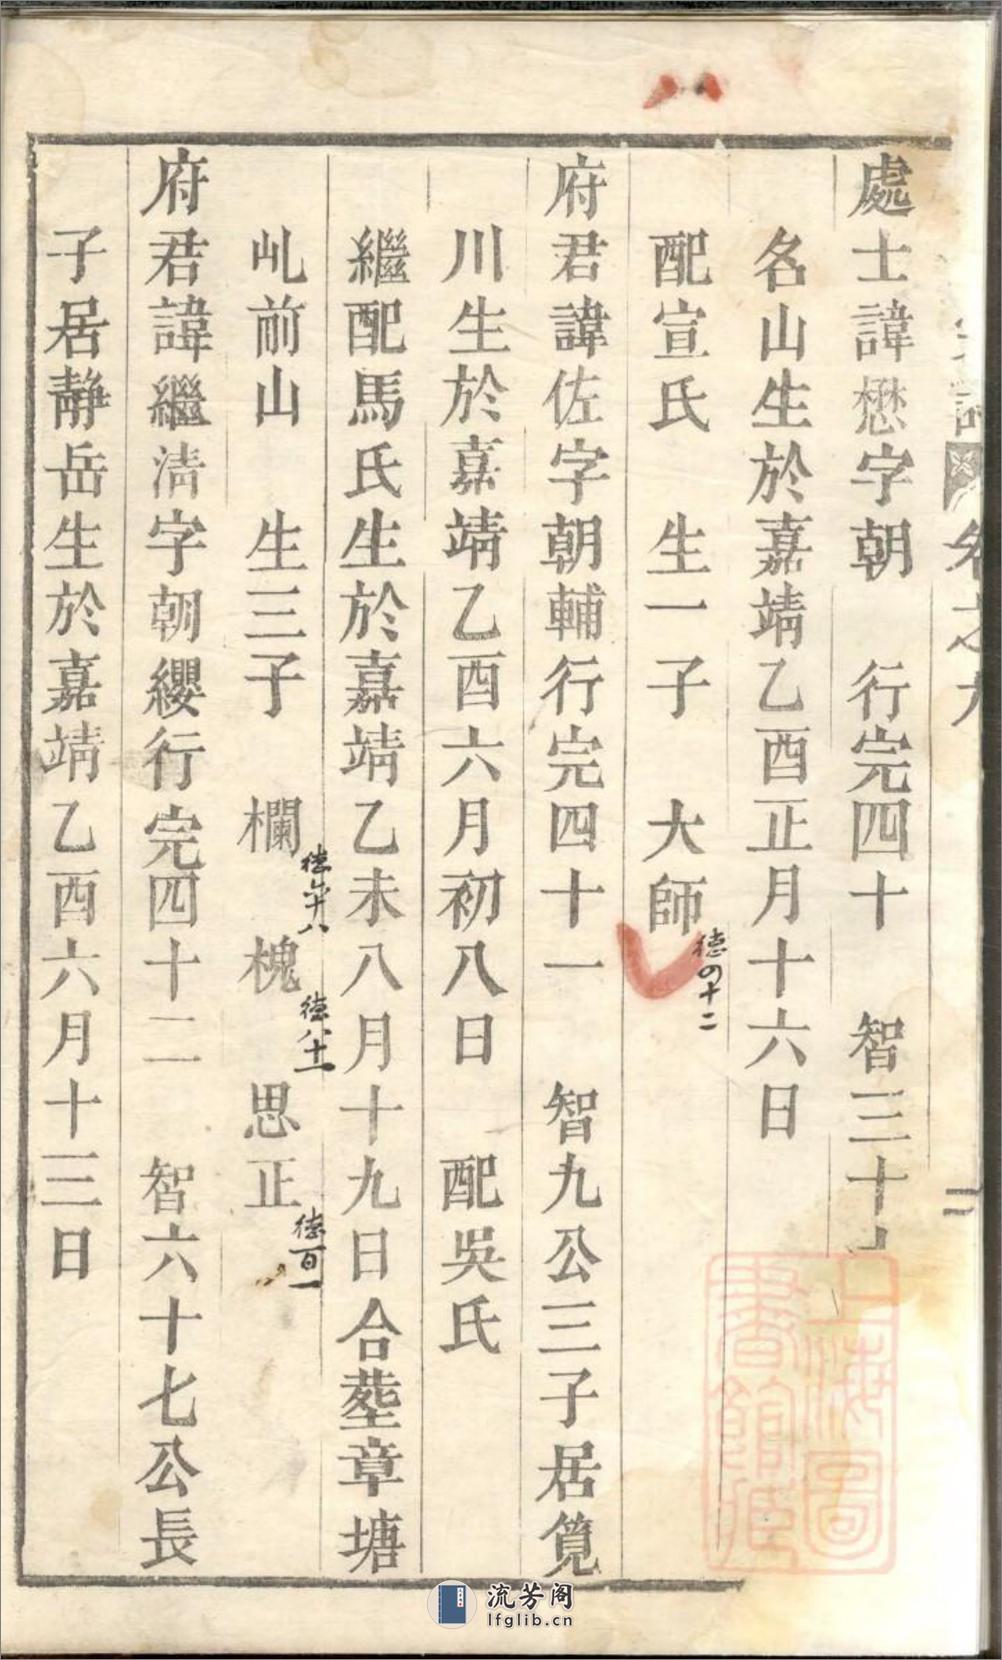 處士諱懋字朝 行完四十 智三十
名山生於嘉靖乙酉正月十六日
配宣氏 生一子 大師
德四十二
府君諱佐字朝輔行完四十一 智九公三子居筧
川生於嘉靖乙酉六月初八日 配吳氏
繼配馬氏生於嘉靖乙未八月十九日合塟章塘
乢前山 生三子 欄 槐 思正
德八十一
德百一
府君諱繼淸字朝纓行完四十二 智六十七公長
子居靜岳生於嘉靖乙酉六月十三日
卷之九
二
上海圖書館藏
流芳阁
lfglib.cn